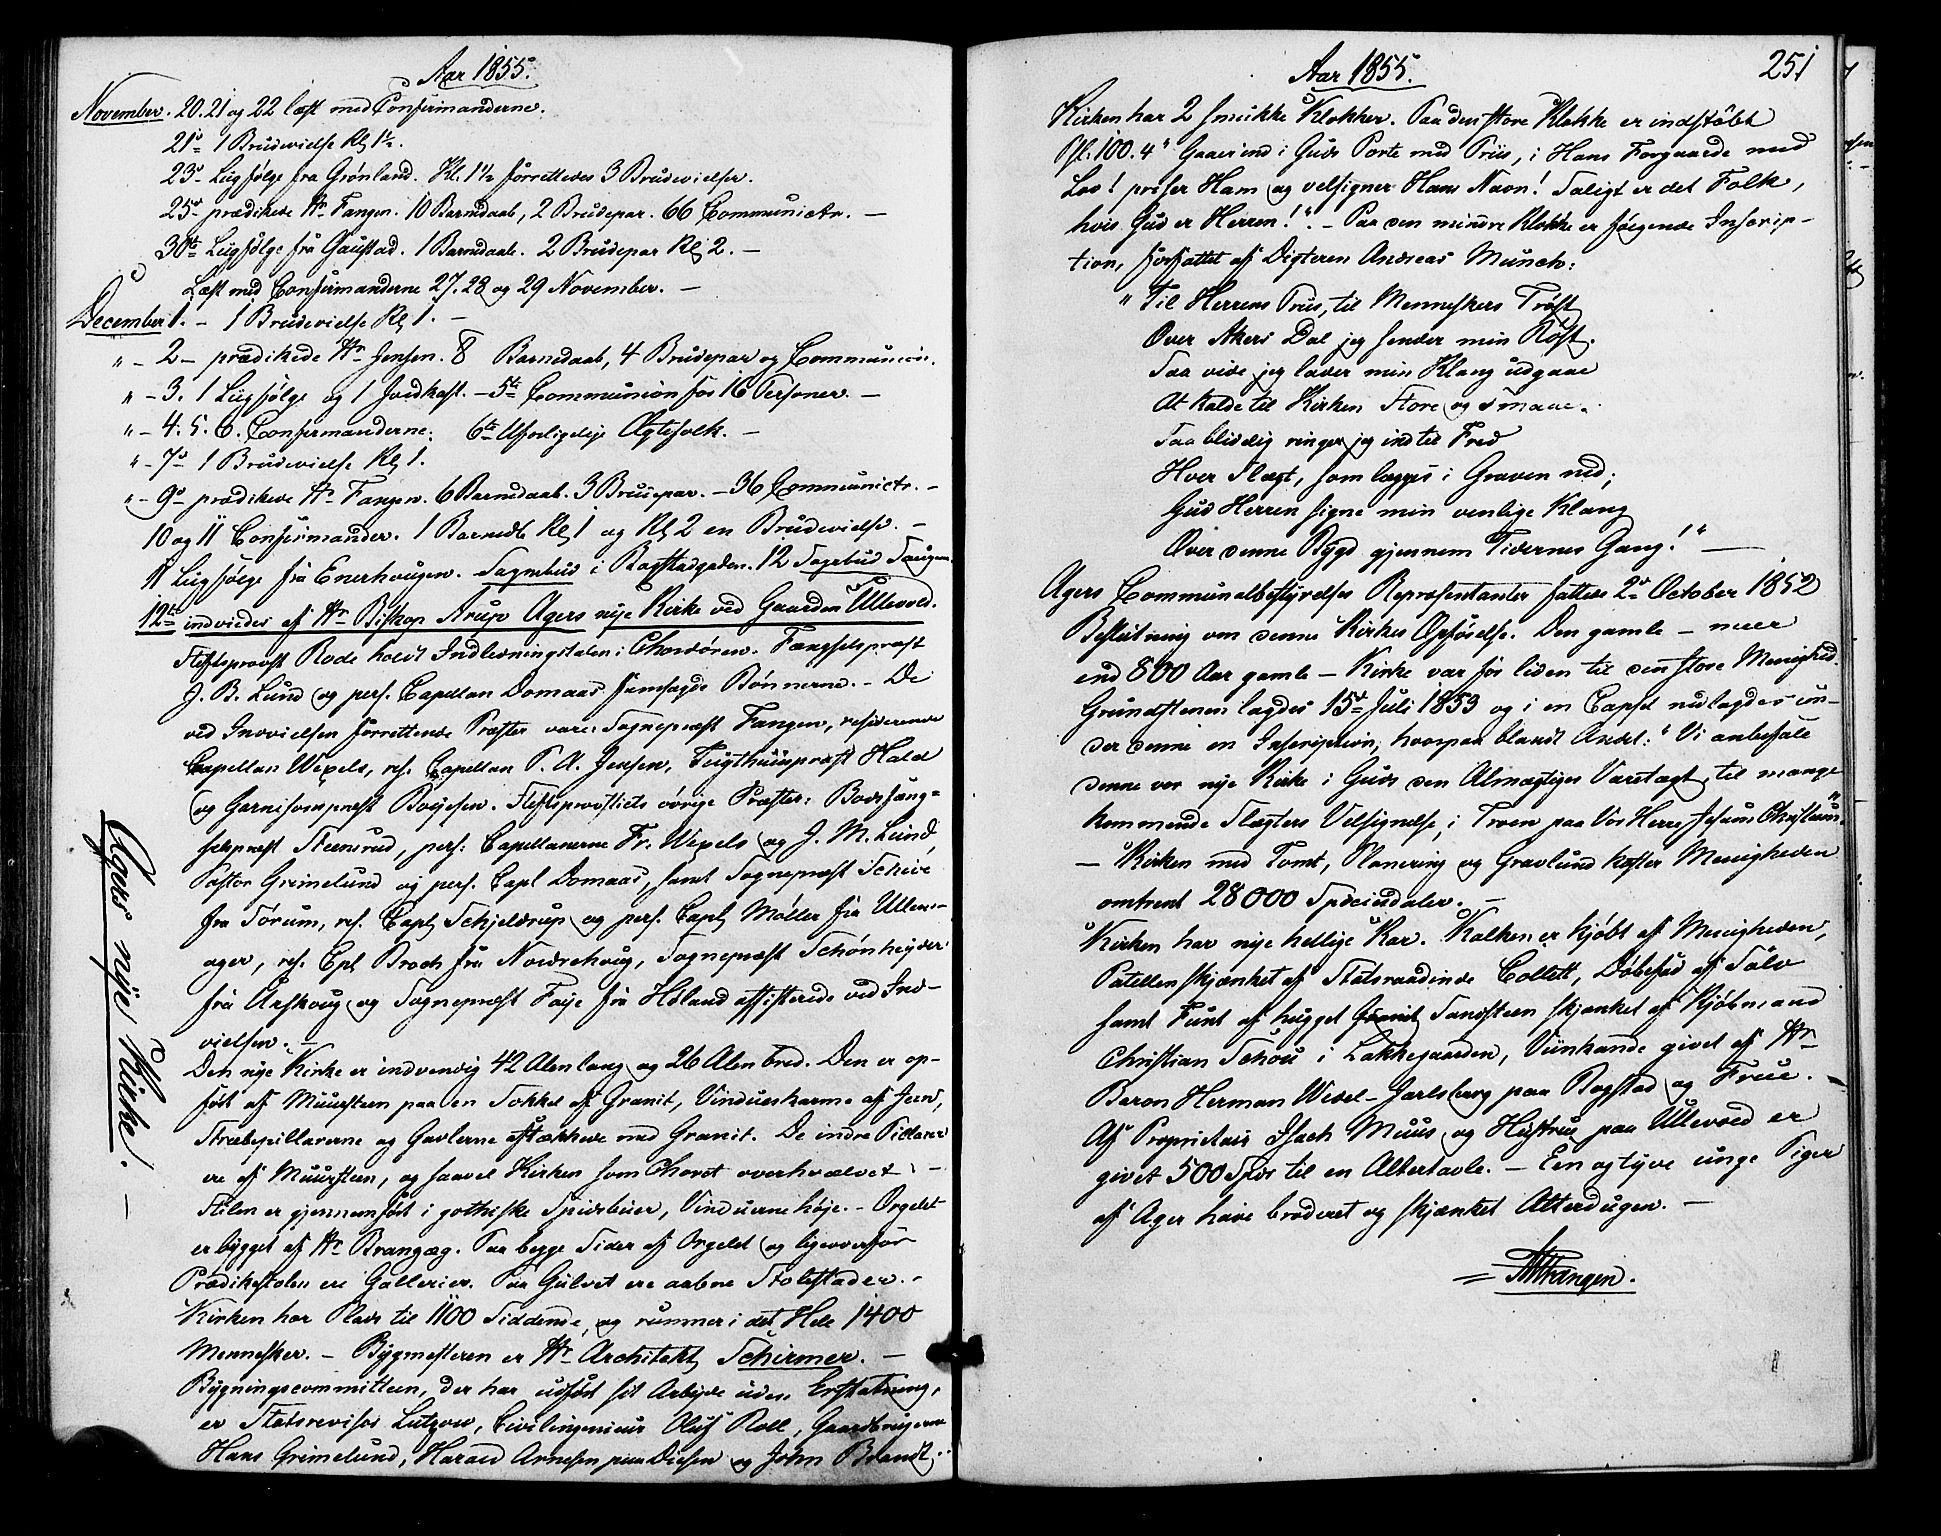 Aar 1855.
November. 20. 21 og 22 læst med Confirmanderne.
21de 1 Brudevielse Kl 1½.
23de Liigfølge fra Grønland. Kl. 1½ forrettedes 3 Brudevielser.
25de prædikede Hr Fangen. 10 Barndaab, 2 Brudepar. 66 Communicatr. —
30te Liigfølge fra Gaustad. 1 Barndaab. 2 Brudepar Kl 2. —
Læst med Confirmanderne 27. 28 og 29 November. —
December 1. — 1 Brudevielse Kl 1. —
" — 2 — prædikede Hr Jensen. 8 Barnedaab, 4 Brudepar og Communion.
" — 3. 1 Liigfølge og 1 Jordkast. — 5te Communion for 16 Personer. —
" — 4. 5. 6. Confirmanderne. 6te Uforligelige Ægtefolk. —
" — 7de 1 Brudevielse Kl 1.
" — 9de prædikede Hr Fangen. 6 Barndaab. 3 Brudepar. — 36 Communictr. —
10 og 11 Confirmander. 1 Barnedb Kl 1 og Kl 2 en Brudevielse. —
11 Liigfølge fra Enerhougen. Sognebud i Bogstadgaden. 12 Sognebud Tougen.
12te indviedes af Hr Biskop Arup Agers nye Kirke ved Gaarden Ullevold.
Stiftsprovst Rode holdt Indledningstalen i Chordøren. Fængselspræst
J. B. Lund og pers. Capellan Domaas fremsagde Bønnerne. — De
ved Indvielsen forrettende Præster vare: Sognepræst Fangen, residerende
Capellan Wexels, res. Capellan P. A. Jensen, Tugthuuspræst Hald
og Garnisonspræst Boyesen. Stiftsprovstiets øvrige Præster: Bodsfæng=
selspræst Steensrud, pers: Capellanerne Fr. Wexels og J. M. Lund,
Pastor Grimelund og pers. Capl Domaas, samt Sognepræst Schive
fra Sørum, res. Capl Schjelderup og pers. Capl Møller fra Ullens—
ager, res. Cpl Broch fra Nordrehoug, Sognepræst Schønheyder
fra Aurskoug og Sognepræst Faye fra Høland assisterede ved Ind—
vielsen. —
Den nye Kirke er indvendig 42 Alen lang og 26 Alen bred. Den er op—
ført af Muursteen paa en Sokkel af Granit, Vindueskarme af Jern,
Stræbepillarerne og Gavlerne aftækkede med Granit. De indre Pillarer
ere af Muursteen, og saavel Kirken som Choret overhvælvet. —
Stilen er gjennemført i gothiske Spidsbuer, Vinduerne høje. — Orgelet
er bygget af Hr Brantzæg. Paa begge Sider af Orgelet og ligeoverfor
Prædikestolen ere Gallerier. Paa Gulvet ere aabne Stolestader. —
Kirken har Plads til 1100 Siddende, og rummer i det Hele 1400
Mennesker. — Bygmesteren er Hr Architekt Schirmer. —
Bygningscommitteen, der har udført sit Arbejde uden Erstatning,
er Statsrevisor Lutzow, Civilingenieur Oluf Roll, Gaardbrugerne
Hans Grimelund, Harald Arnesen paa Disen og John Brandt.
Agers nye Kirke. —
Aar 1855.
251
Kirken har 2 smukke Klokker. Paa den store Klokke er indstøbt
Ps. 100. 4 " Gaaer ind i Guds Porte med Priis, i Hans Forgaarde med
Lov! priser Ham og velsigner Hans Navn! Saligt er det Folk,
hvis Gud er Herren!". — Paa den mindre Klokke er følgende Inscrip—
tion, forfattet af Digteren Andreas Munch:
" Til Herrens Priis, til Menneskers Trøst
Over Akers Dal jeg sender min Røst.
Saa vide jeg lader min Klang udgaae
At kalde til Kirken Store og Smaae.
Saa blidelig ringer jeg ind til Fred
Hver Slægt, som lægges i Graven ned;
Gud Herren signe min venlige Klang
Over denne Bygd gjennem Tidernes Gang!" —
Agers Communalbestyrelses Repræsentanter fattede 2den October 1852
Beslutning om denne Kirkes Opførelse. Den gamle — meer
end 800 Aar gamle — Kirke var for liden til den store Menighed.
Grundstenen lagdes 15de Juli 1853 og i en Capsel nedlagdes un—
der denne en Inscription, hvorpaa blandt Andet: "Vi anbefale
denne vor nye Kirke i Guds den Almægtiges Varetægt, til mange
kommende Slægters Velsignelse, i Troen paa Vor Herre Jesum Christum."
— Kirken med Tomt, Planering og Gravlund koster Menigheden
omtrent 28000 Speciedaler. —
Kirken har nye hellige Kar. Kalken er kjøbt af Menigheden,
Patellen skjænket af Statsraadinde Collett, Døbefad af Sølv
samt Funt af hugget Granit Sandsteen skjænket af Kjøbmand
Christian Schou i Lakkegaarden, Viinkande givet af Hr
Baron Herman Wedel-Jarlsberg paa Bogstad og Frue.
Af Proprietair Isach Muus og Hustrue paa Ullevold er
givet 500 Spdr til en Altertavle. — Een og tyve unge Piger
af Ager have broderet og skjænket Alterdugen. —
Fangen.